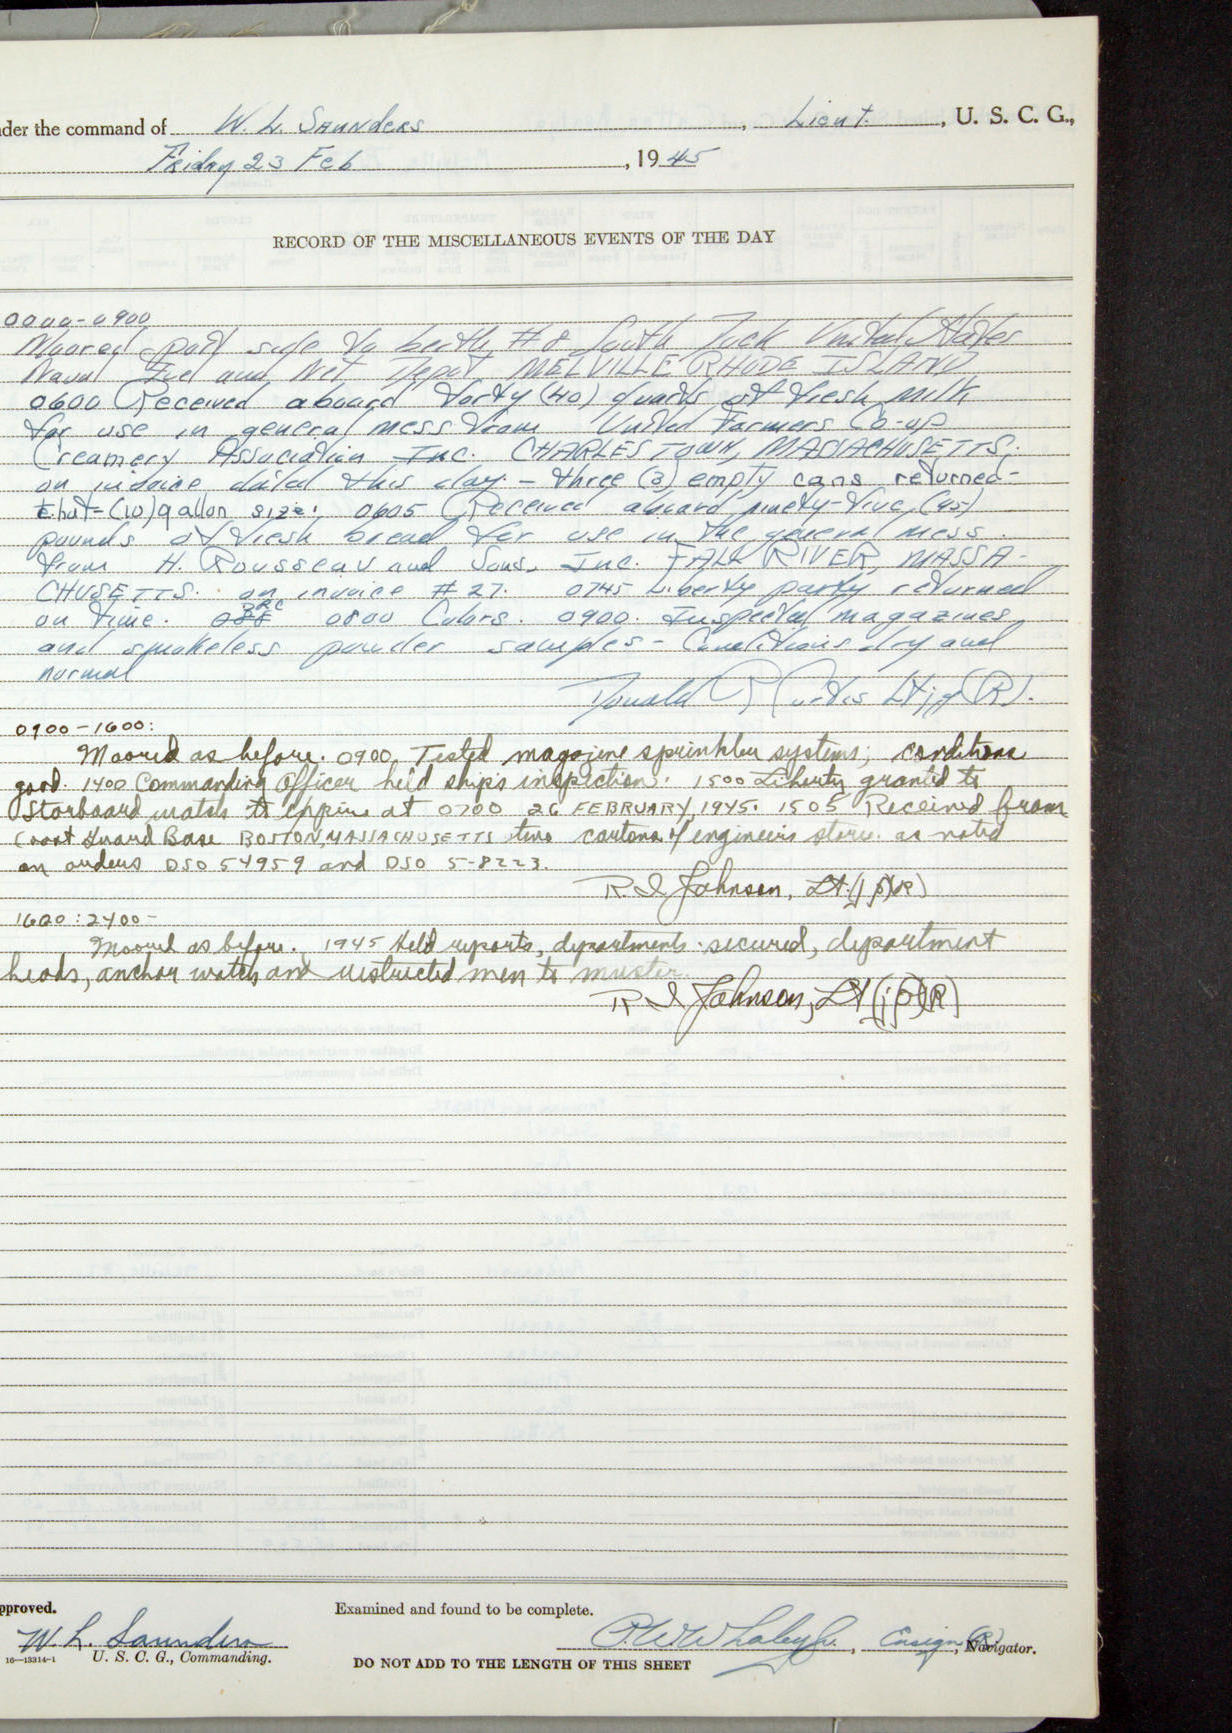 nder the command of W. L. SAUNDERS, Lieut., U. S. C. G.,
Friday 23 Feb, 1945
RECORD OF THE MISCELLANEOUS EVENTS OF THE DAY
0000-0900
Moored port side to berth #8 South Dock United States
Naval Fuel and Net Depot MELVILLE RHODE ISLAND
0600 Received aboard forty (40) quarts of fresh milk
for use in general mess from United Farmers Co-op
Creamery Association Inc. CHARLESTOWN, MASSACHUSETTS.
on invoice dated this day - three (3) empty cans returned-
(10) gallon size. 0605 Received aboard ninety-five (95)
pounds of fresh bread for use in the general mess
from H. Rousseau and Sons, Inc. FALL RIVER, MASSA-
CHUSETTS. on invoice #27. 0745 Liberty party returned
on time. 0800 Colors. 0900. Inspected magazines
and smokeless powder samples - Conditions dry and
normal
Donald R Curtis Ltjg (R).
0900-1600:
Moored as before. 0900 Tested magazine sprinkler systems; conditions
good. 1400 Commanding Officer held ship's inspection. 1500 Liberty granted to
Starboard watch to expire at 0700 26 FEBRUARY, 1945. 1505 Received from
Coast Guard Base BOSTON, MASSACHUSETTS two cartons of engineers stores as noted
on orders DSO 54959 and DSO 5-8223.
R I Johnson, Lt. (jg)(R)
1600:2400-
Moored as before. 1945 Held reports, departments secured, department
heads, anchor watch and restricted men to muster.
R I Johnson, Lt (jg)(R)
pproved.
Examined and found to be complete.
W. L. Saunders
Ensign (R), Navigator.
16-13314-1 U. S. C. G., Commanding.
DO NOT ADD TO THE LENGTH OF THIS SHEET